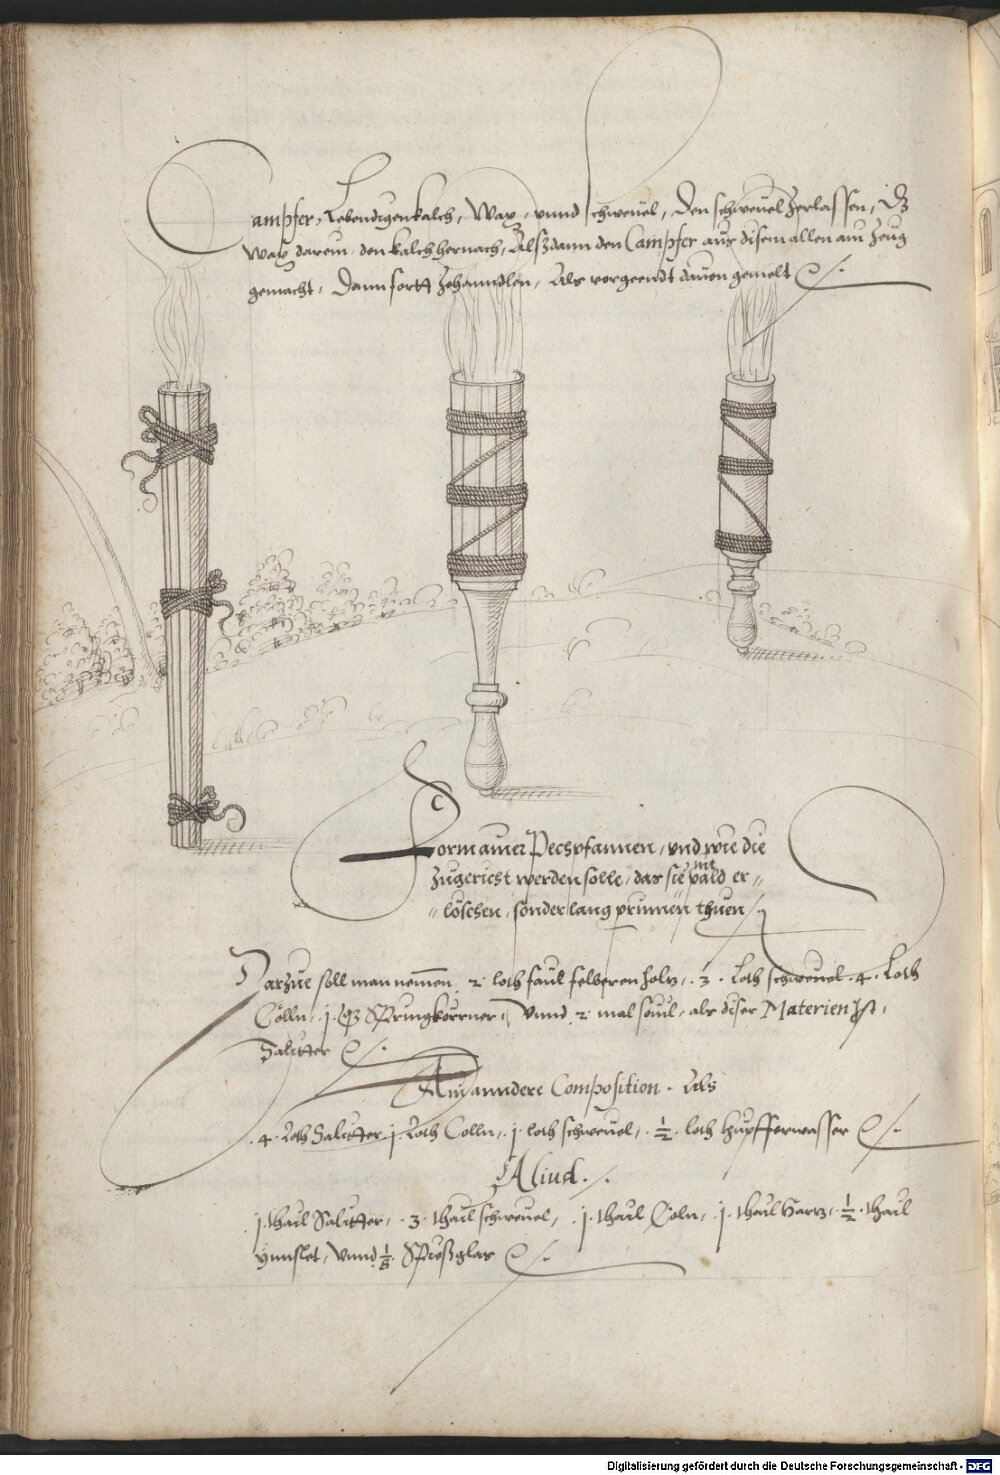 Campfer, Lebendigen kalch, Wax, vnnd schweuel, den schweuel Zerlassen, dz
wax darein, den kalch hernach, Alßdann den Campfer aus disem allen ain Zeug
gemacht, dann fortt Zehanndlen, Als vorgeendt dauon gemelt
Form ainer Pechpfannen, vnd wie die
Zugericht werden solle, das sie nit pald er„
„löschen, sonder lang prinnen thuen
Darzue soll man nemen 2 loth faul felberen holz, 3. Loth schweuel 4. Loth
Colln, j. Sprungkörner, Vnnd 2 mal souil, als diser Materien Ist,
Salitter
Ain anndere Composition. Als
4. Loth Salitter j. Loth Colln, j. loth schweuel, ½ loth kupfferwasser
Aliud.
j. thail Salitter, 3. thail schweuel, j. thail Coln, j. thail Harz, ½ thail
ynnslet, Vnnd ⅛ Spießglas
Digitalisierung gefördert durch die Deutsche Forschungsgemeinschaft - DFG